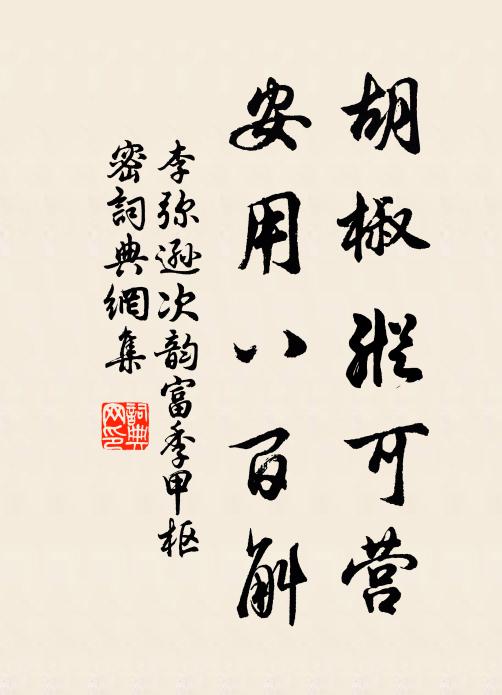 胡椒縱可营
安用八百斛
李弥遜次韵富季甲枢
密詞典網集
詞典网印